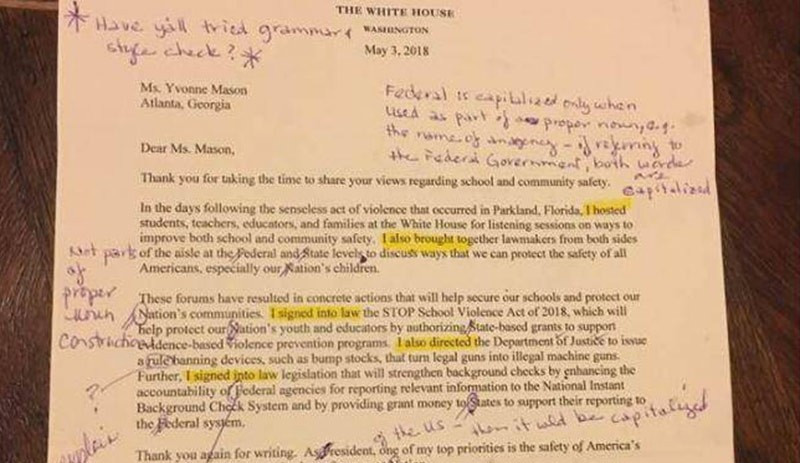 THE WHITE HOUSE
* Have y'all tried grammar &
WASHINGTON
style check? *
May 3, 2018
Ms. Yvonne Mason
Atlanta, Georgia
Federal is capitalized only when
used as part of a proper noun, e.g.
the name of an agency - if referring to
the Federal Government, both words
are
capitalized
Dear Ms. Mason,
Thank you for taking the time to share your views regarding school and community safety.
In the days following the senseless act of violence that occurred in Parkland, Florida, I hosted
students, teachers, educators, and families at the White House for listening sessions on ways to
improve both school and community safety. I also brought together lawmakers from both sides
of the aisle at the Federal and State levels to discuss ways that we can protect the safety of all
Americans, especially our Nation's children.
Not parts
of
proper
noun
construction
These forums have resulted in concrete actions that will help secure our schools and protect our
Nation's communities. I signed into law the STOP School Violence Act of 2018, which will
help protect our Nation's youth and educators by authorizing State-based grants to support
evidence-based violence prevention programs. I also directed the Department of Justice to issue
a rule banning devices, such as bump stocks, that turn legal guns into illegal machine guns.
Further, I signed into law legislation that will strengthen background checks by enhancing the
accountability of Federal agencies for reporting relevant information to the National Instant
Background Check System and by providing grant money to States to support their reporting to
the Federal system.
?
explain
of the US - then it wld be capitalized
Thank you again for writing. As President, one of my top priorities is the safety of America's